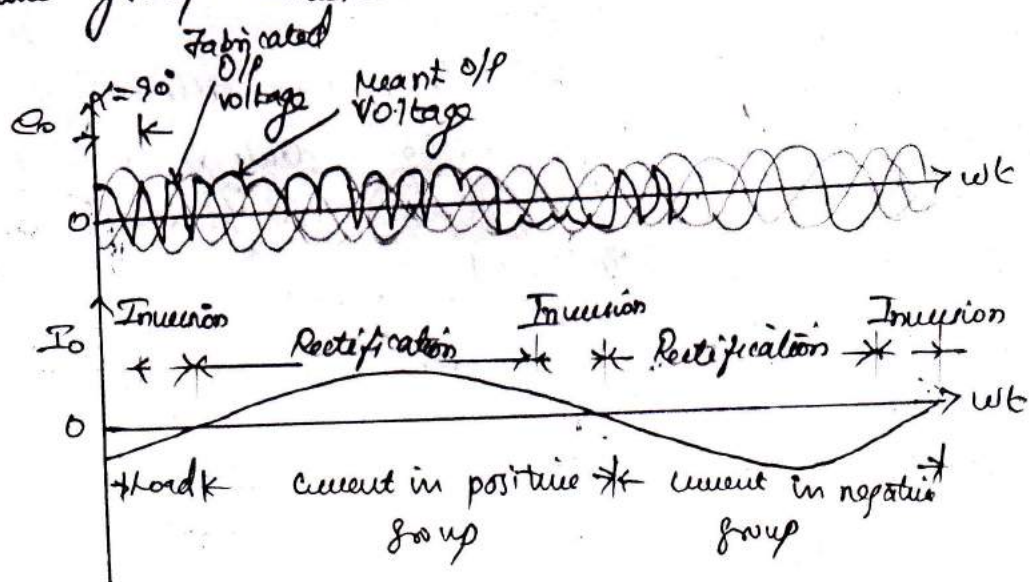 Fabricated
O/P
voltage
Meant O/P
Voltage
α=90°
e₀
0
ωt
Inversion
Rectification
Inversion
Rectification
Inversion
I₀
0
ωt
Load
current in positive
group
current in negative
group